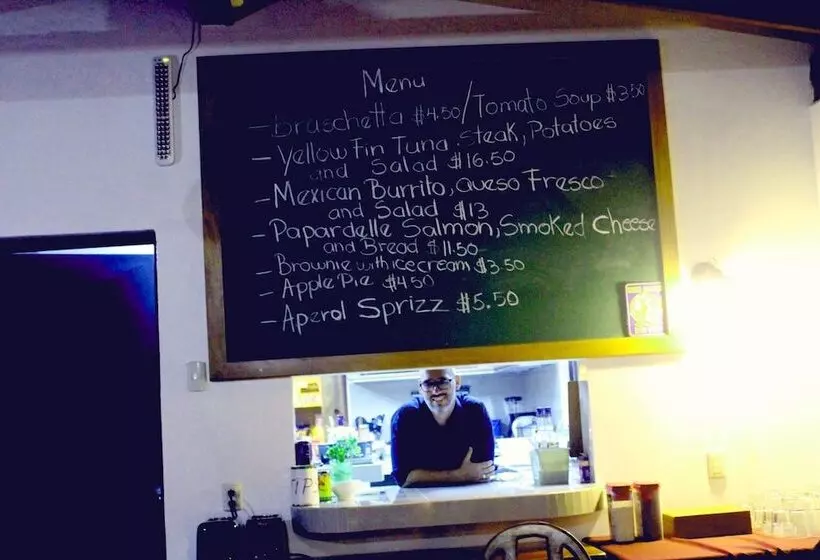 Menu
- Bruschetta $4.50/Tomato Soup $3.50
- Yellow Fin Tuna Steak, Potatoes
and Salad $16.50
- Mexican Burrito, Queso Fresco
and Salad $13
- Papardelle Salmon, Smoked Cheese
and Bread $11.50
- Brownie with ice cream $3.50
- Apple Pie $4.50
- Aperol Sprizz $5.50
TIP